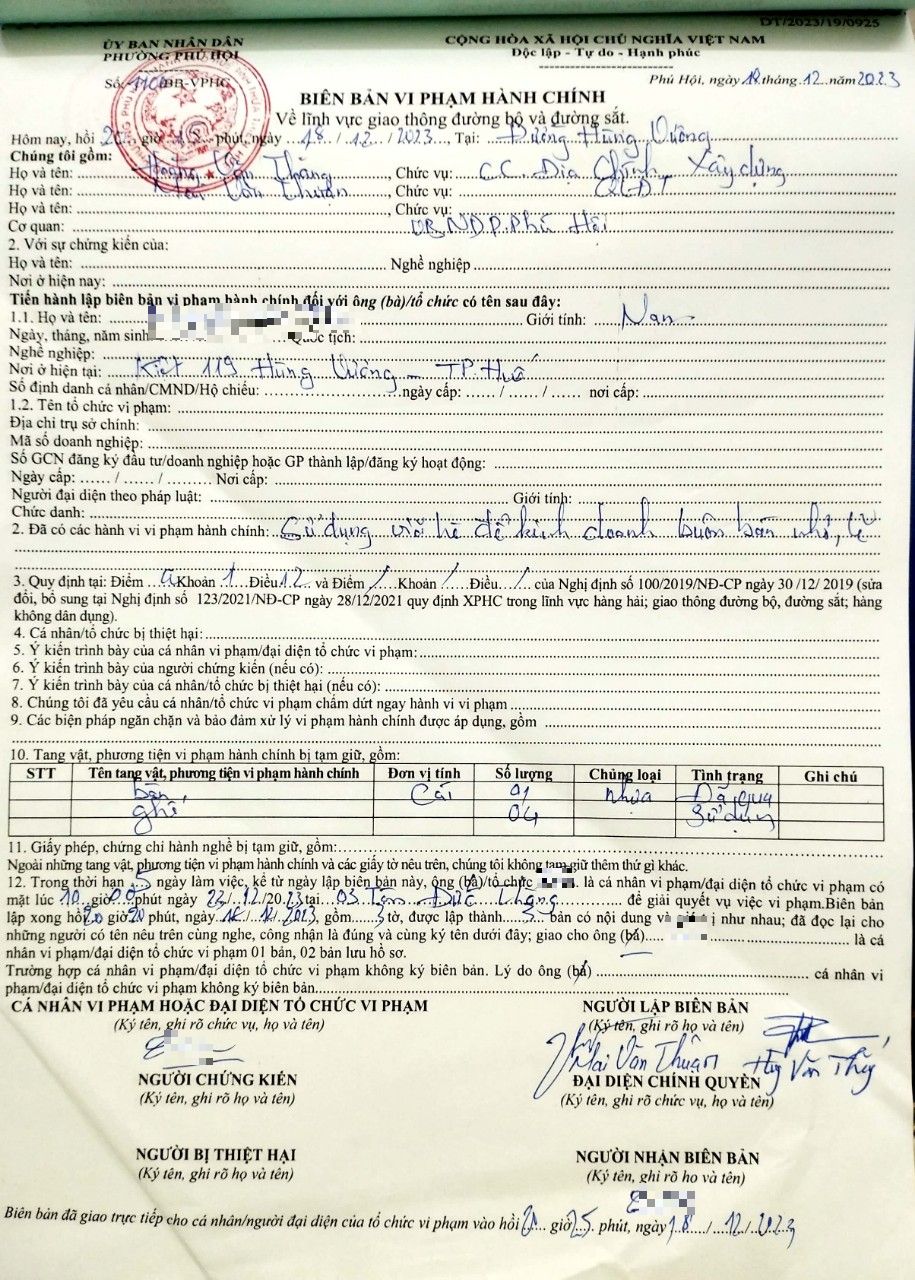 DT/2023/19/0925
ỦY BAN NHÂN DÂN
PHƯỜNG PHÚ HỘI
CỘNG HÒA XÃ HỘI CHỦ NGHĨA VIỆT NAM
Độc lập - Tự do - Hạnh phúc
Số: /BB-VPHC
Phú Hội, ngày 18 tháng 12 năm 2023
BIÊN BẢN VI PHẠM HÀNH CHÍNH
Về lĩnh vực giao thông đường bộ và đường sắt.
Hôm nay, hồi 20 giờ 15 phút, ngày 18 / 12 / 2023, Tại: Đường Hùng Vương
Chúng tôi gồm:
Họ và tên: Văn Thắng, Chức vụ: CC. Địa Chính Xây dựng
Họ và tên: Mai Văn Thuận, Chức vụ: QLĐT
Họ và tên: , Chức vụ:
Cơ quan: UBND P. Phú Hội
2. Với sự chứng kiến của:
Họ và tên: Nghề nghiệp
Nơi ở hiện nay:
Tiến hành lập biên bản vi phạm hành chính đối với ông (bà)/tổ chức có tên sau đây:
1.1. Họ và tên: Giới tính: Nam
Ngày, tháng, năm sinh Quốc tịch:
Nghề nghiệp:
Nơi ở hiện tại: Kiệt 119 Hùng Vương - TP. Huế
Số định danh cá nhân/CMND/Hộ chiếu: ngày cấp: / / nơi cấp:
1.2. Tên tổ chức vi phạm:
Địa chỉ trụ sở chính:
Mã số doanh nghiệp:
Số GCN đăng ký đầu tư/doanh nghiệp hoặc GP thành lập/đăng ký hoạt động:
Ngày cấp: / / Nơi cấp:
Người đại diện theo pháp luật: Giới tính:
Chức danh:
2. Đã có các hành vi vi phạm hành chính: Sử dụng vỉa hè để kinh doanh buôn bán nhỏ, lẻ
3. Quy định tại: Điểm a Khoản 1 Điều 12 và Điểm / Khoản / Điều / của Nghị định số 100/2019/NĐ-CP ngày 30 /12/ 2019 (sửa
đổi, bổ sung tại Nghị định số 123/2021/NĐ-CP ngày 28/12/2021 quy định XPHC trong lĩnh vực hàng hải; giao thông đường bộ, đường sắt; hàng
không dân dụng).
4. Cá nhân/tổ chức bị thiệt hại:
5. Ý kiến trình bày của cá nhân vi phạm/đại diện tổ chức vi phạm:
6. Ý kiến trình bày của người chứng kiến (nếu có):
7. Ý kiến trình bày của cá nhân/tổ chức bị thiệt hại (nếu có):
8. Chúng tôi đã yêu cầu cá nhân/tổ chức vi phạm chấm dứt ngay hành vi vi phạm
9. Các biện pháp ngăn chặn và bảo đảm xử lý vi phạm hành chính được áp dụng, gồm
10. Tang vật, phương tiện vi phạm hành chính bị tạm giữ, gồm:
STT Tên tang vật, phương tiện vi phạm hành chính Đơn vị tính Số lượng Chủng loại Tình trạng Ghi chú
bàn Cái 01 nhựa Đã qua
ghế 04 sử dụng
11. Giấy phép, chứng chỉ hành nghề bị tạm giữ, gồm:
Ngoài những tang vật, phương tiện vi phạm hành chính và các giấy tờ nêu trên, chúng tôi không tạm giữ thêm thứ gì khác.
12. Trong thời hạn 5 ngày làm việc, kể từ ngày lập biên bản này, ông (bà)/tổ chức là cá nhân vi phạm/đại diện tổ chức vi phạm có
mặt lúc 10 giờ 00 phút ngày 22/ 12/2023 tại 03 Tôn Đức Thắng để giải quyết vụ việc vi phạm.Biên bản
lập xong hồi 20 giờ 20 phút, ngày 12/2023, gồm 3 tờ, được lập thành 3 bản có nội dung và trị như nhau; đã đọc lại cho
những người có tên nêu trên cùng nghe, công nhận là đúng và cùng ký tên dưới đây; giao cho ông (bà) là cá
nhân vi phạm/đại diện tổ chức vi phạm 01 bản, 02 bản lưu hồ sơ.
Trường hợp cá nhân vi phạm/đại diện tổ chức vi phạm không ký biên bản. Lý do ông (bà) cá nhân vi
phạm/đại diện tổ chức vi phạm không ký biên bản
CÁ NHÂN VI PHẠM HOẶC ĐẠI DIỆN TỔ CHỨC VI PHẠM
(Ký tên, ghi rõ chức vụ, họ và tên)
NGƯỜI LẬP BIÊN BẢN
(Ký tên, ghi rõ họ và tên)
Mai Văn Thuận
NGƯỜI CHỨNG KIẾN
(Ký tên, ghi rõ họ và tên)
ĐẠI DIỆN CHÍNH QUYỀN
(Ký tên, ghi rõ chức vụ, họ và tên)
NGƯỜI BỊ THIỆT HẠI
(Ký tên, ghi rõ họ và tên)
NGƯỜI NHẬN BIÊN BẢN
(Ký tên, ghi rõ ho và tên)
Biên bản đã giao trực tiếp cho cá nhân/người đại diện của tổ chức vi phạm vào hồi 20 giờ 25 phút, ngày 18 / 12 / 2023